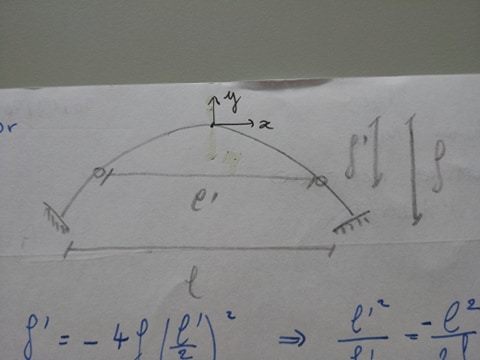 or
y
x
f'
f
l'
l
f' = - 4f (l'/2)² ⇒ l'²/f' = -l²/2f